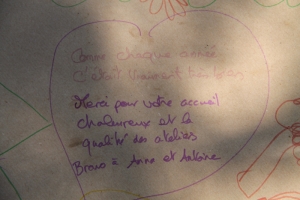 Comme chaque année
c'était vraiment très beau
Merci pour votre accueil
chaleureux et la
qualité des ateliers
Bravo à Anne et Antoine